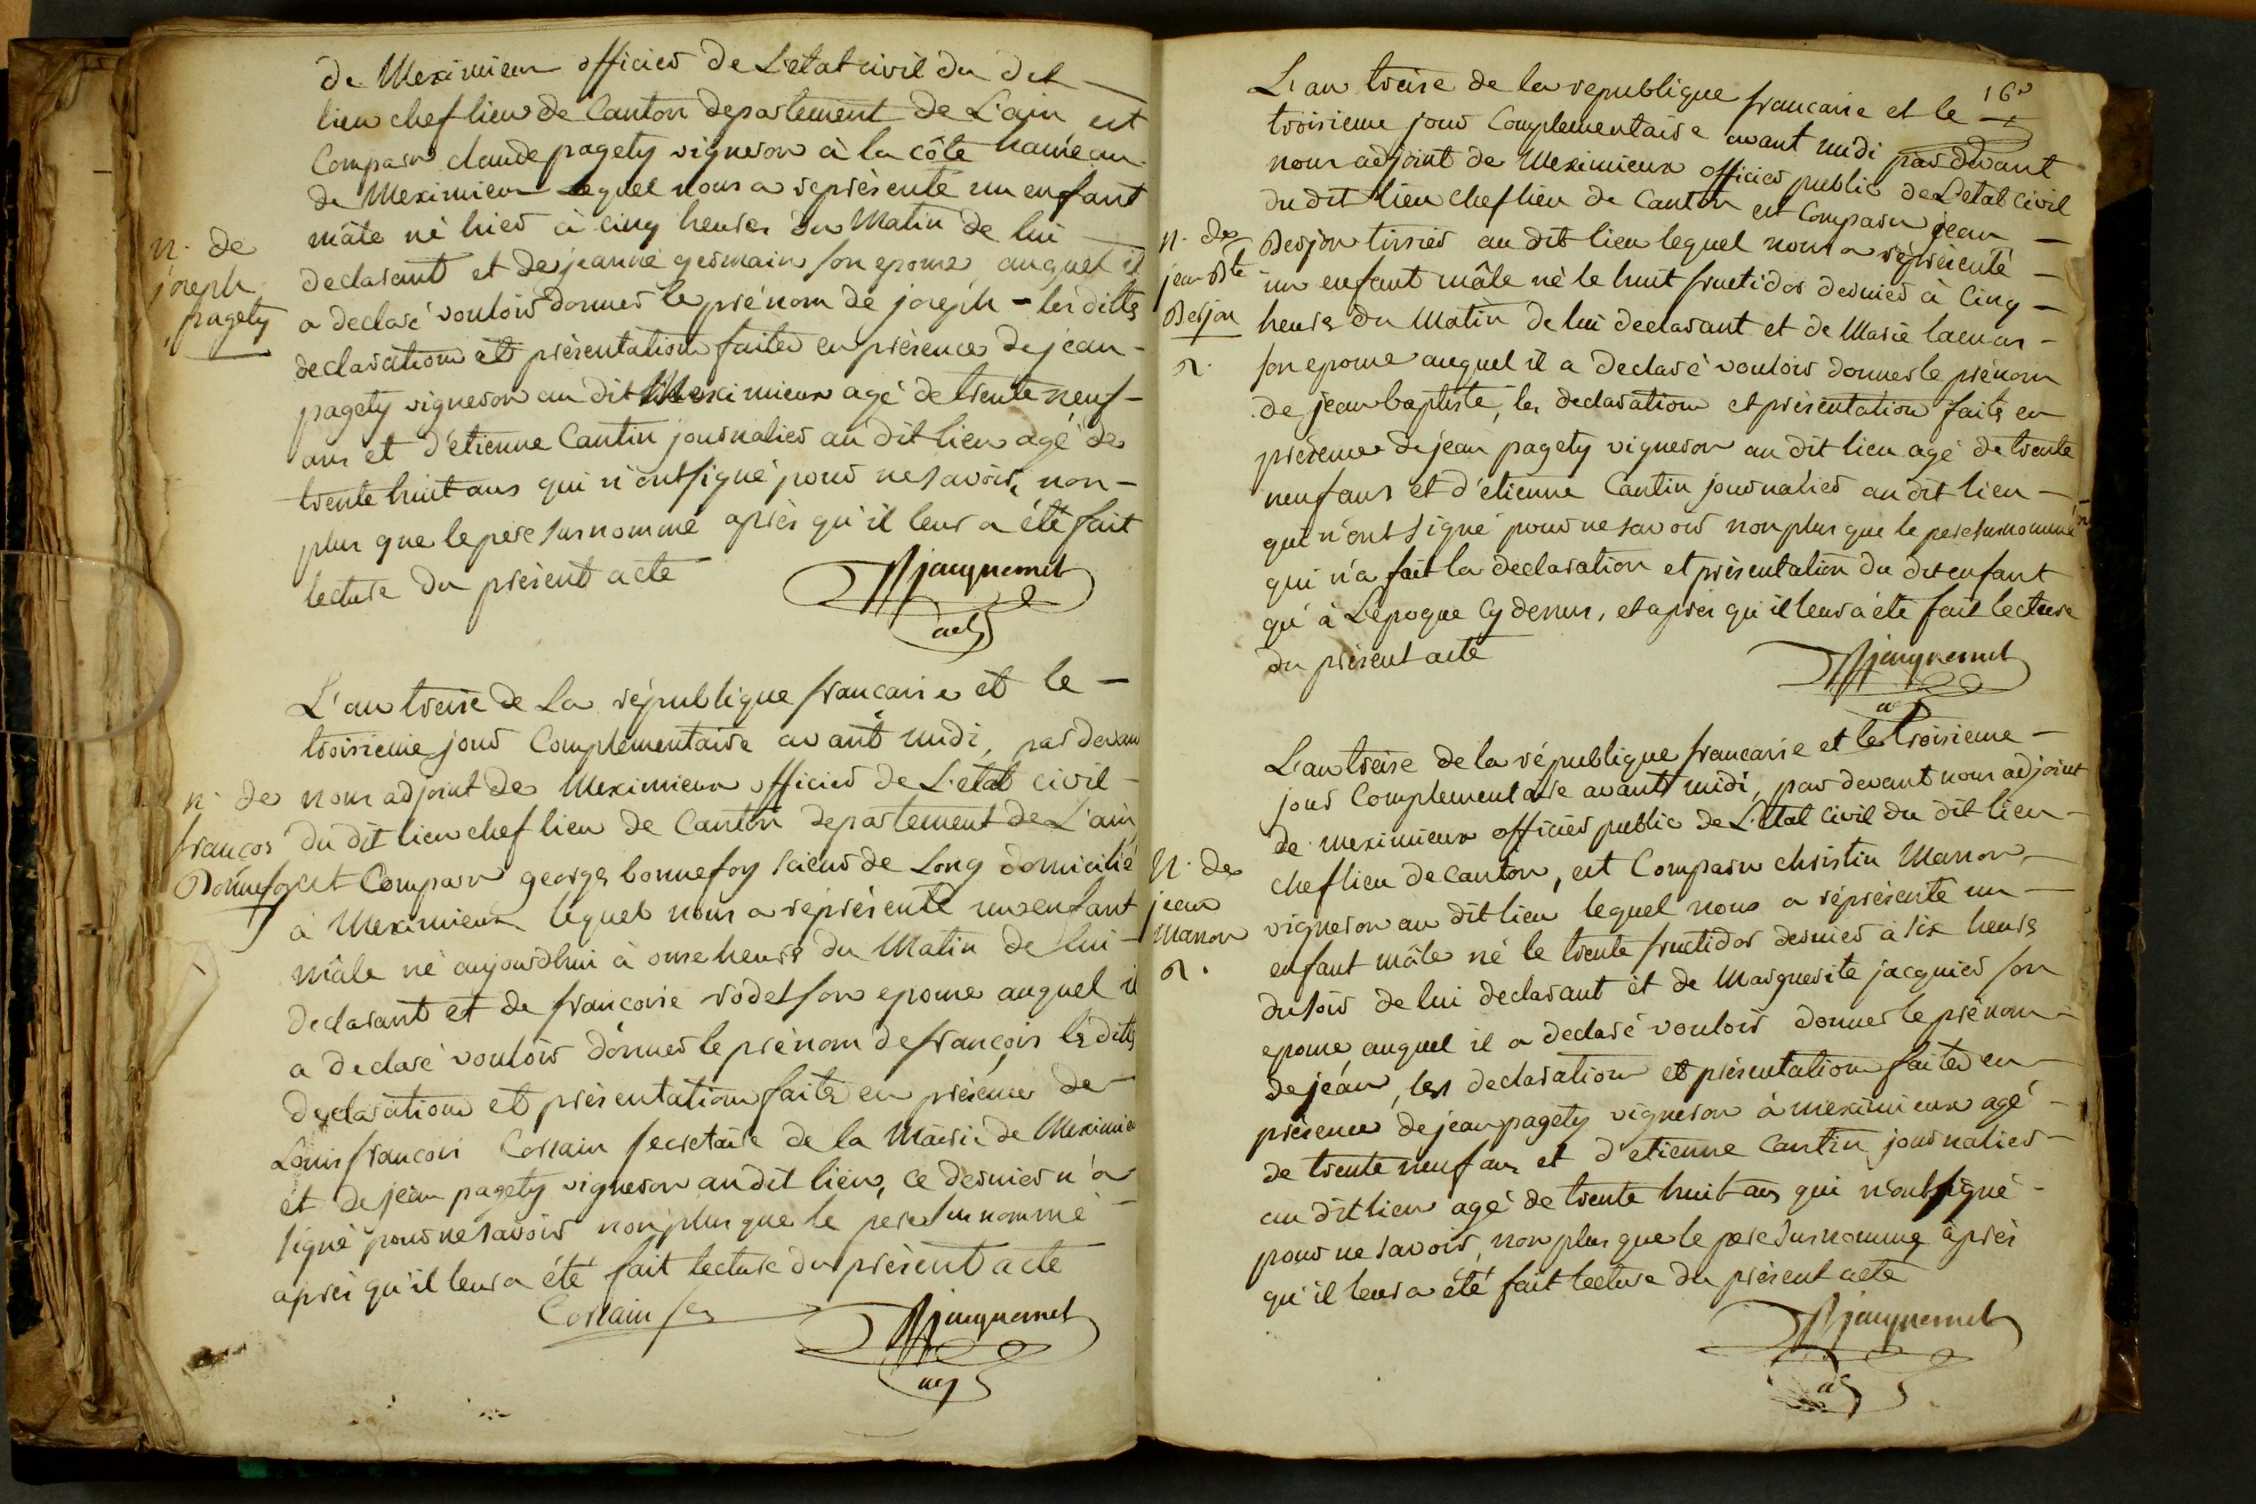 de Meximieux officier de L'etat civil du dit
lieu chef lieu de Canton departement de L'ain est
Comparu claude pagety vigneron à la côte hameau
de Meximieux lequel nous a représenté un enfant
mâle né hier à cinq heures du Matin de lui
n. de
joseph
pagety
declarant et de jeanne germain son epouse auquel il
a declaré vouloir donner le prénom de joseph - les dittes
declaration et présentation faites en présence de jean
pagety vigneron au dit Meximieux agé de trente neuf
ans et d'etienne Cantin journalier au dit lieu agé de
trente huit ans qui n'ont signé pour ne savoir, non
plus que le pere susnommé après qu'il leur a été fait
lecture du présent acte
Jacquemet
adj
L'an treise de La république francaise et le
troisieme jour Complémentaire avant midi, par devant
n. de
françois
Bonnefoy
nous adjoint de Meximieux officier de L'etat civil
du dit lieu chef lieu de Canton departement de L'ain
est Comparu george bonnefoy scieur de Long domicilié
à Meximieux lequel nous a représenté un enfant
mâle né aujourdhui à onse heures du Matin de lui
declarant et de francoise rodet son epouse auquel il
a declaré vouloir donner le prénom de françois les dittes
declaration et présentation faites en présence de
Louis francois Corrain secretaire de la Mairie de Meximieux
et de jean pagety vigneron au dit lieu, ce dernier n'a
signé pour ne savoir non plus que le pere susnommé
après qu'il leur a été fait lecture du présent acte
Corrain
Jacquemet
adj
16
L'an treise de la republique francaise et le
troisieme jour Complementaire avant midi par devant
nous adjoint de Meximieux officier public de L'etat civil
du dit lieu chef lieu de Canton est Comparu jean
n. de
jean Bte
Berjon
n.
Berjon tissier au dit lieu lequel nous a réprésenté
un enfant mâle né le huit fructidor dernier à Cinq
heures du Matin de lui declarant et de Marie
son epouse auquel il a declaré vouloir donner le prénom
de jean baptiste, les declaration et présentation faites en
présence de jean pagety vigneron au dit lieu agé de trente
neuf ans et d'etienne Cantin journalier au dit lieu
qui n'ont signé pour ne savoir non plus que le pere susnommé
qui n'a fait la declaration et présentation du dit enfant
qu'à L'epoque Cy dessus, et après qu'il leur a été fait lecture
du présent acte
Jacquemet
L'an treise de la république francaise et le troisieme
jour Complementaire avant midi, par devant nous adjoint
de meximieux officier public de L'état civil du dit lieu
n. de
jean
Manon
n.
chef lieu de canton, est Comparu christin Manon
vigneron au dit lieu lequel nous a réprésenté un
enfant mâle né le trente fructidor dernier à six heures
du soir de lui declarant et de Marguerite jacquier son
epouse auquel il a declaré vouloir donner le prénom
de jean, les declaration et présentation faites en
présence de jean pagety vigneron à meximieux agé
de trente neuf ans et d'etienne Cantin journalier
au dit lieu agé de trente huit ans qui n'ont signé
pour ne savoir, non plus que le pere susnommé après
qu'il leur a été fait lecture du présent acte
Jacquemet